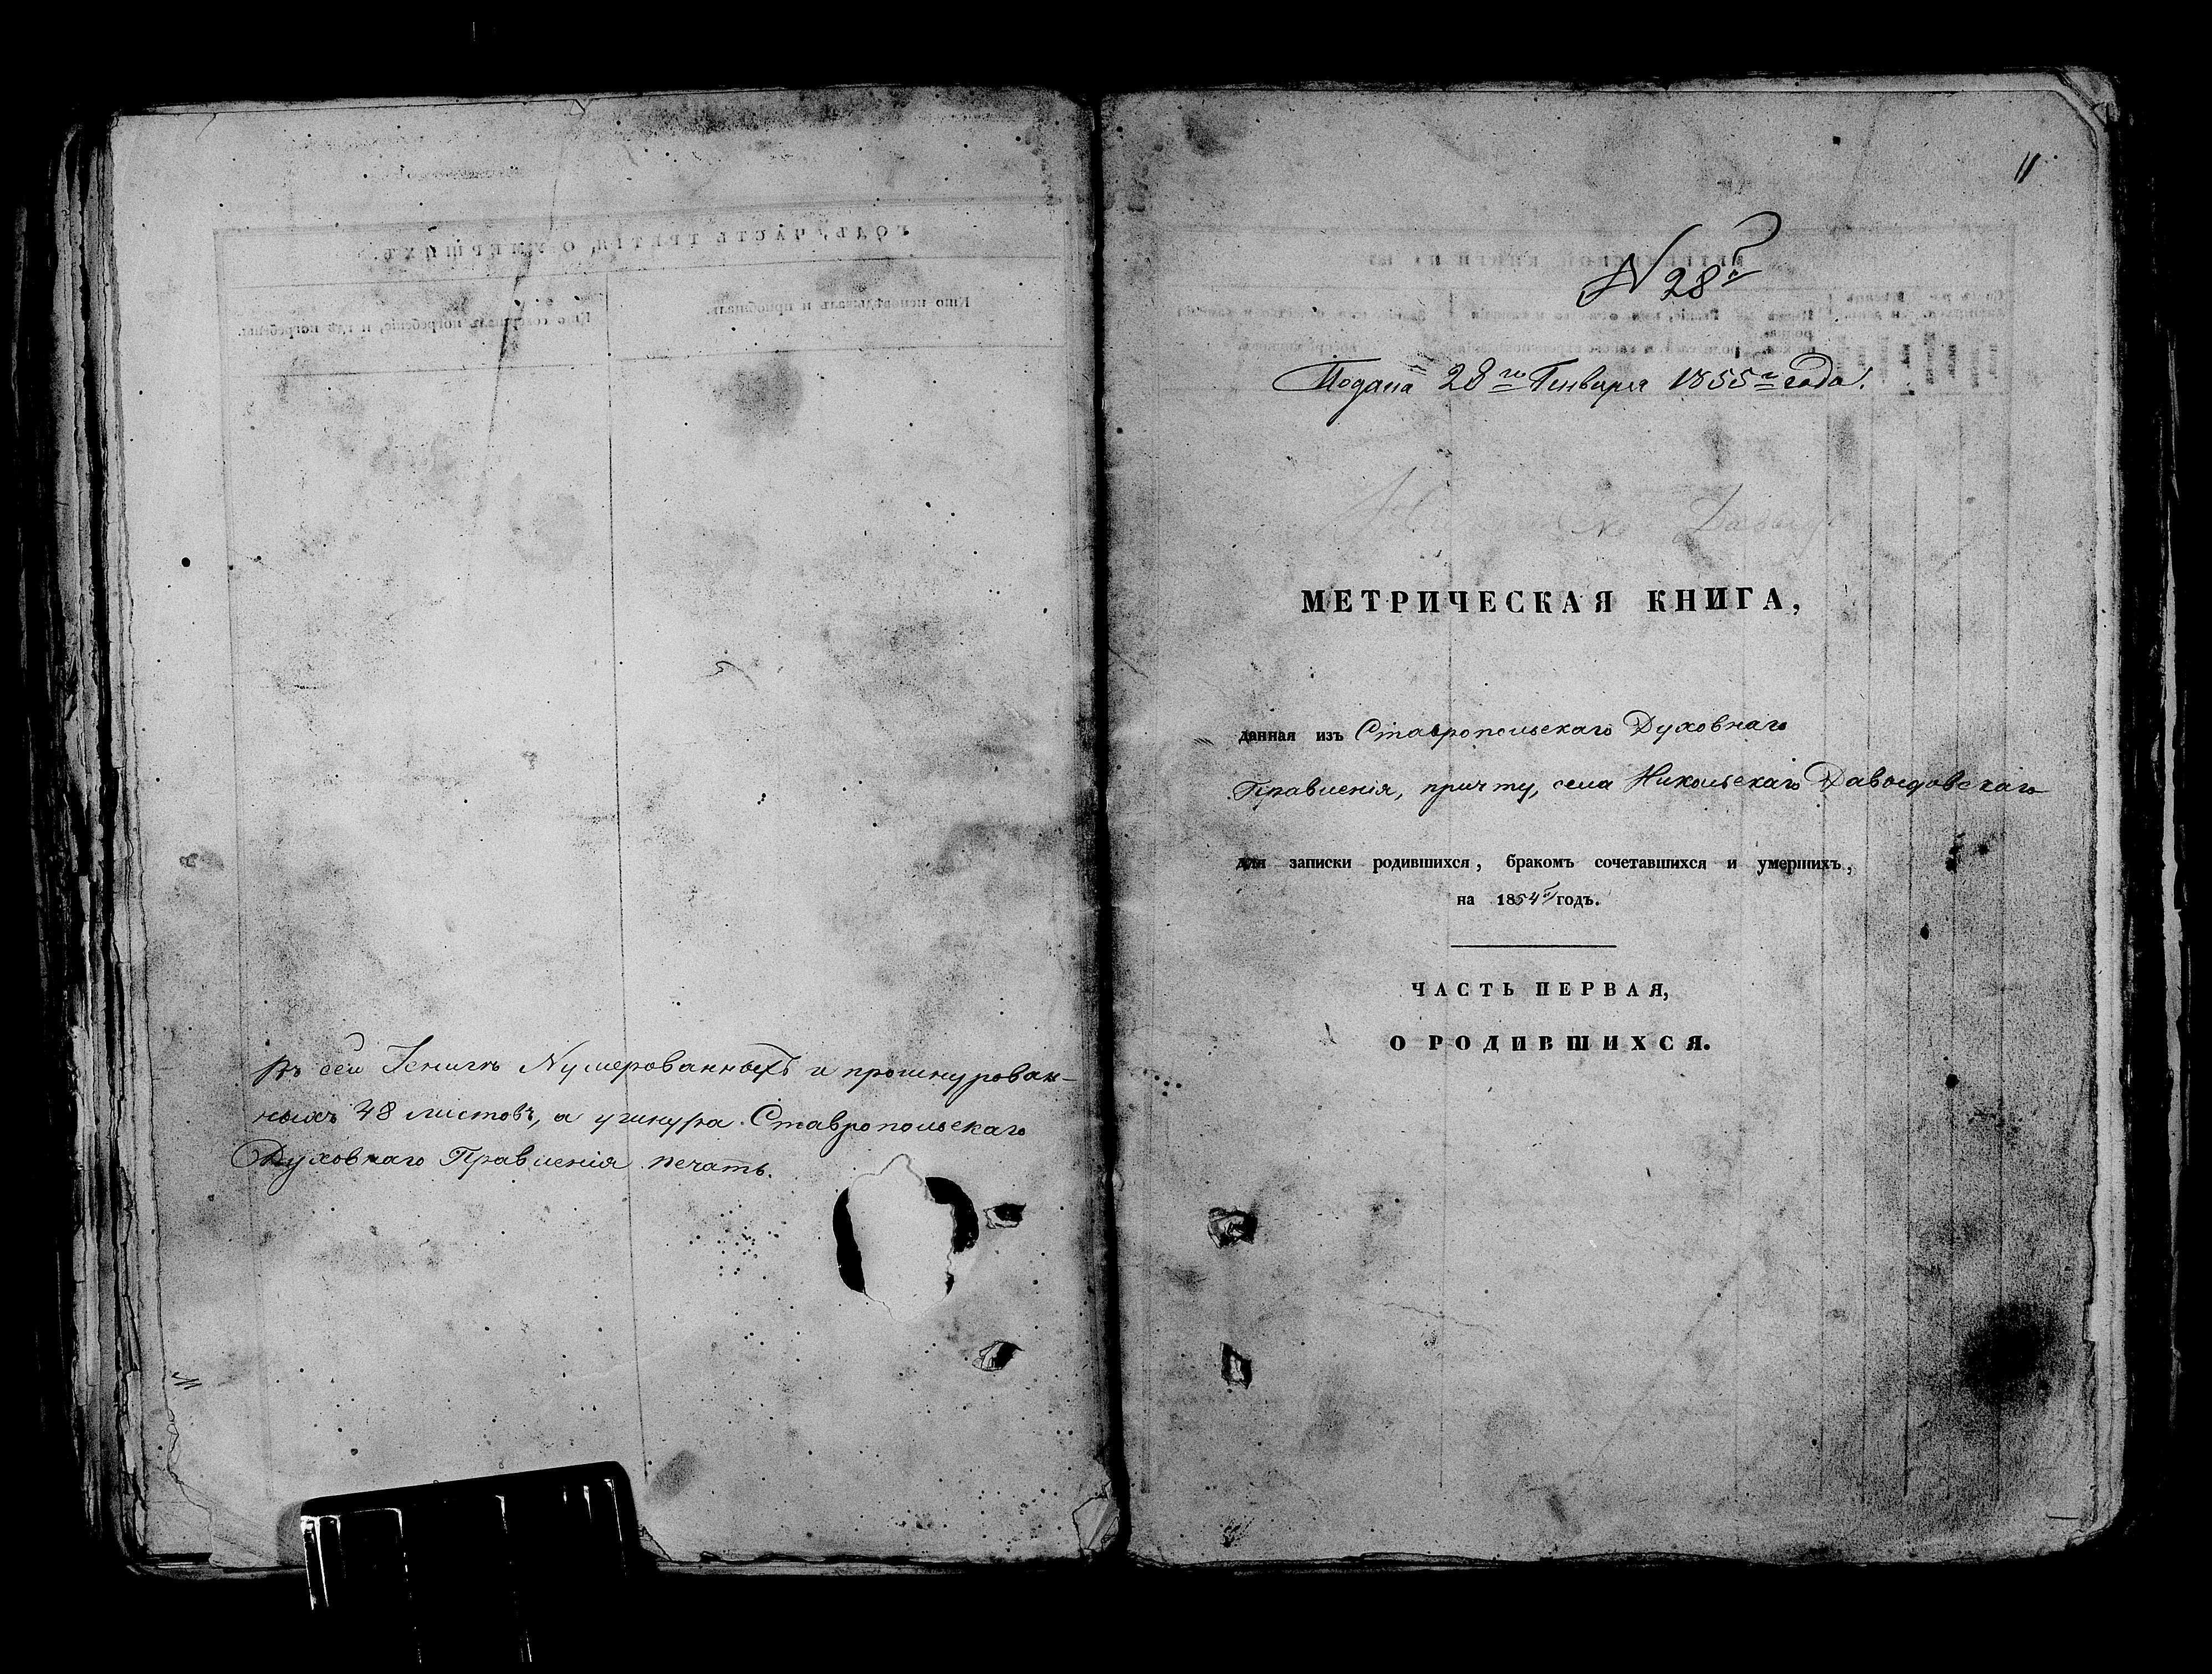 Въ сей Книгѣ Нумерованныхъ и прошнурован-
ныхъ 48 листовъ, а у шнура Ставропольскаго
Духовнаго Правленія печать.
11
N 28й
Подана 28го Генваря 1855го года.
МЕТРИЧЕСКАЯ КНИГА,
данная изъ Ставропольскаго Духовнаго
Правленія, причту, села Никольскаго Давыдовскаго
для записки родившихся, бракомъ сочетавшихся и умершихъ,
на 1854й годъ.
ЧАСТЬ ПЕРВАЯ,
О РОДИВШИХСЯ.